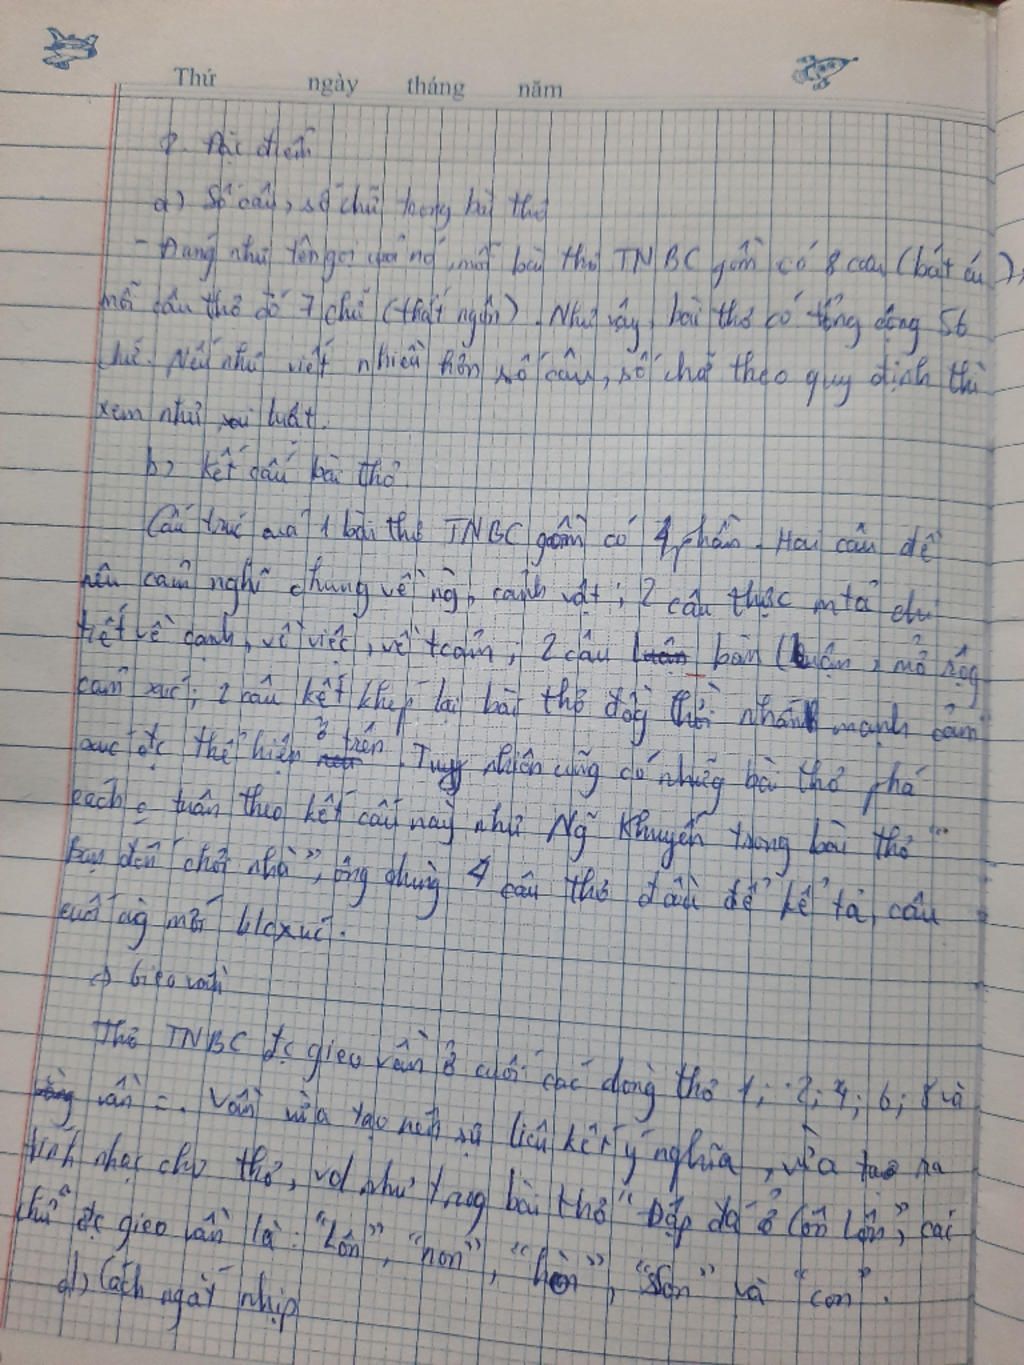 Thứ ngày tháng năm
2. Đặc điểm
a) Số câu, số chữ trong bài thơ
- Đúng như tên gọi của nó, một bài thơ TNBC gồm có 8 câu (bát cú),
mỗi câu thơ có 7 chữ (thất ngôn). Như vậy, bài thơ có tổng cộng 56
chữ. Nếu như viết nhiều hơn số câu, số chữ theo quy định thì
xem như sai luật.
b) Kết cấu bài thơ
Cấu trúc của 1 bài thơ TNBC gồm có 4 phần. Hai câu đề
nêu cảm nghĩ chung về ng, cảnh vật; 2 câu thực mtả chi
tiết về cảnh, về việc, về tcảm; 2 câu luận bàn luận, mở rộg
cảm xúc; 2 câu kết khép lại bài thơ đồg thời nhấn mạnh cảm
xúc đc thể hiện ở trên. Tuy nhiên cũg có nhữg bài thơ phá
cách o tuân theo kết cấu này như Ng Khuyến trong bài thơ "
bạn đến chơi nhà", ông dùng 4 câu thơ đầu để kể tả, câu
cuối cùg mới blcxuc.
c) Gieo vần
Thơ TNBC đc gieo vần ở cuối các dòng thơ 1; 2; 4; 6; 8 và
vần =. Vần vừa tạo nên sự liên kết ý nghĩa, vừa tạo ra
tính nhạc cho thơ, vd như trog bài thơ "Đập đá ở Côn Lôn", các
chữ đc gieo vần là: "Lôn", "non", "hòn", "son" và "con".
d) Cách ngắt nhịp